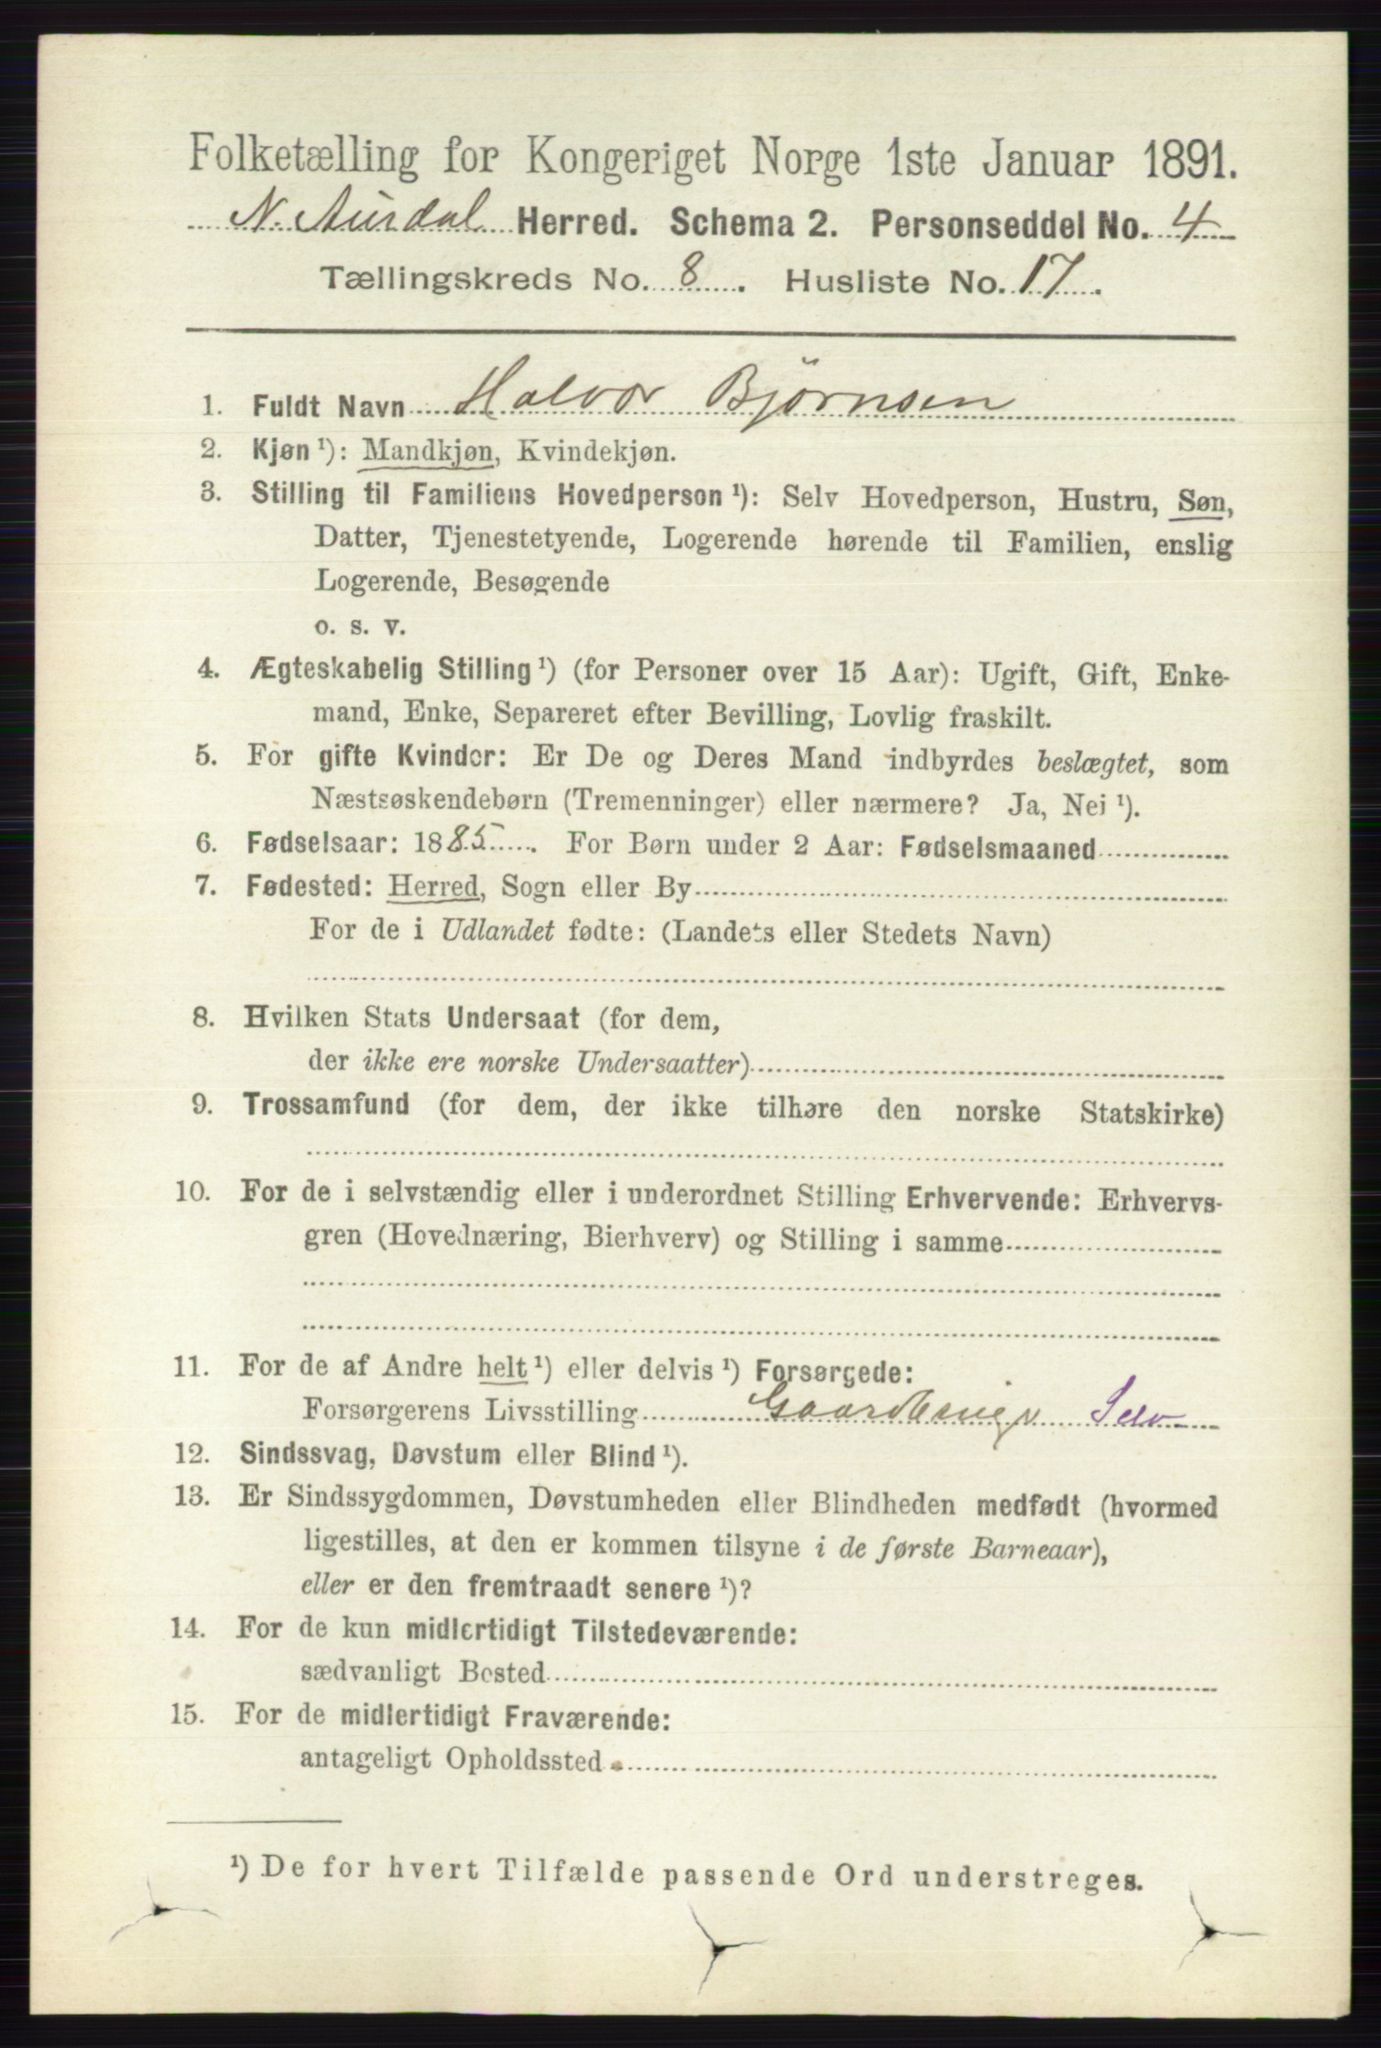 Folketælling for Kongeriget Norge 1ste Januar 1891.
N. Aurdal Herred. Schema 2. Personseddel No. 4
Tællingskreds No. 8. Husliste No. 17.
1. Fuldt Navn Halvor Bjørnsen
2. Kjøn ¹): Mandkjøn, Kvindekjøn.
3. Stilling til Familiens Hovedperson ¹): Selv Hovedperson, Hustru, Søn,
Datter, Tjenestetyende, Logerende hørende til Familien, enslig
Logerende, Besøgende
o. s. v.
4. Ægteskabelig Stilling ¹) (for Personer over 15 Aar): Ugift, Gift, Enke-
mand, Enke, Separeret efter Bevilling, Lovlig fraskilt.
5. For gifte Kvinder: Er De og Deres Mand indbyrdes beslægtet, som
Næstsøskendebørn (Tremenninger) eller nærmere? Ja, Nei ¹).
6. Fødselsaar: 1885. For Børn under 2 Aar: Fødselsmaaned
7. Fødested: Herred, Sogn eller By
For de i Udlandet fødte: (Landets eller Stedets Navn)
8. Hvilken Stats Undersaat (for dem,
der ikke ere norske Undersaatter)
9. Trossamfund (for dem, der ikke tilhøre den norske Statskirke)
10. For de i selvstændig eller i underordnet Stilling Erhvervende: Erhvervs-
gren (Hovednæring, Bierhverv) og Stilling i samme
11. For de af Andre helt ¹) eller delvis ¹) Forsørgede:
Forsørgerens Livsstilling Gaardbruger Selv
12. Sindssvag, Døvstum eller Blind ¹).
13. Er Sindssygdommen, Døvstumheden eller Blindheden medfødt (hvormed
ligestilles, at den er kommen tilsyne i de første Barneaar),
eller er den fremtraadt senere ¹)?
14. For de kun midlertidigt Tilstedeværende:
sædvanligt Bosted
15. For de midlertidigt Fraværende:
antageligt Opholdssted
¹) De for hvert Tilfælde passende Ord understreges.